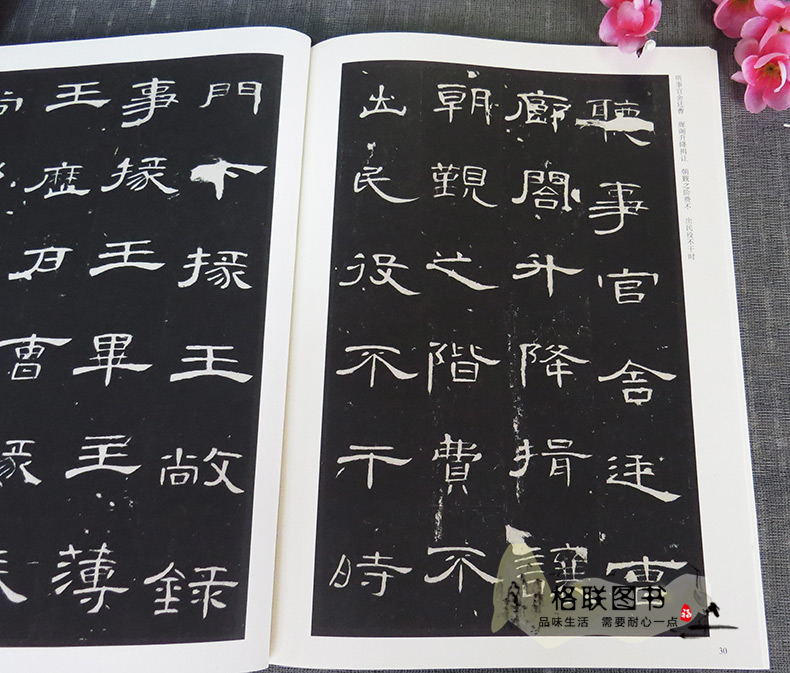 聽事官舍廷曹
廊閣升降揖讓
朝覲之階費不
出民役不干時
听事官舍廷曹 廊阁升降揖让 朝觐之阶费不 出民役不干时
30
門下掾王敞錄
事掾王畢主薄
王歷戶曹掾
尚
格联图书
品味生活 需要耐心一点